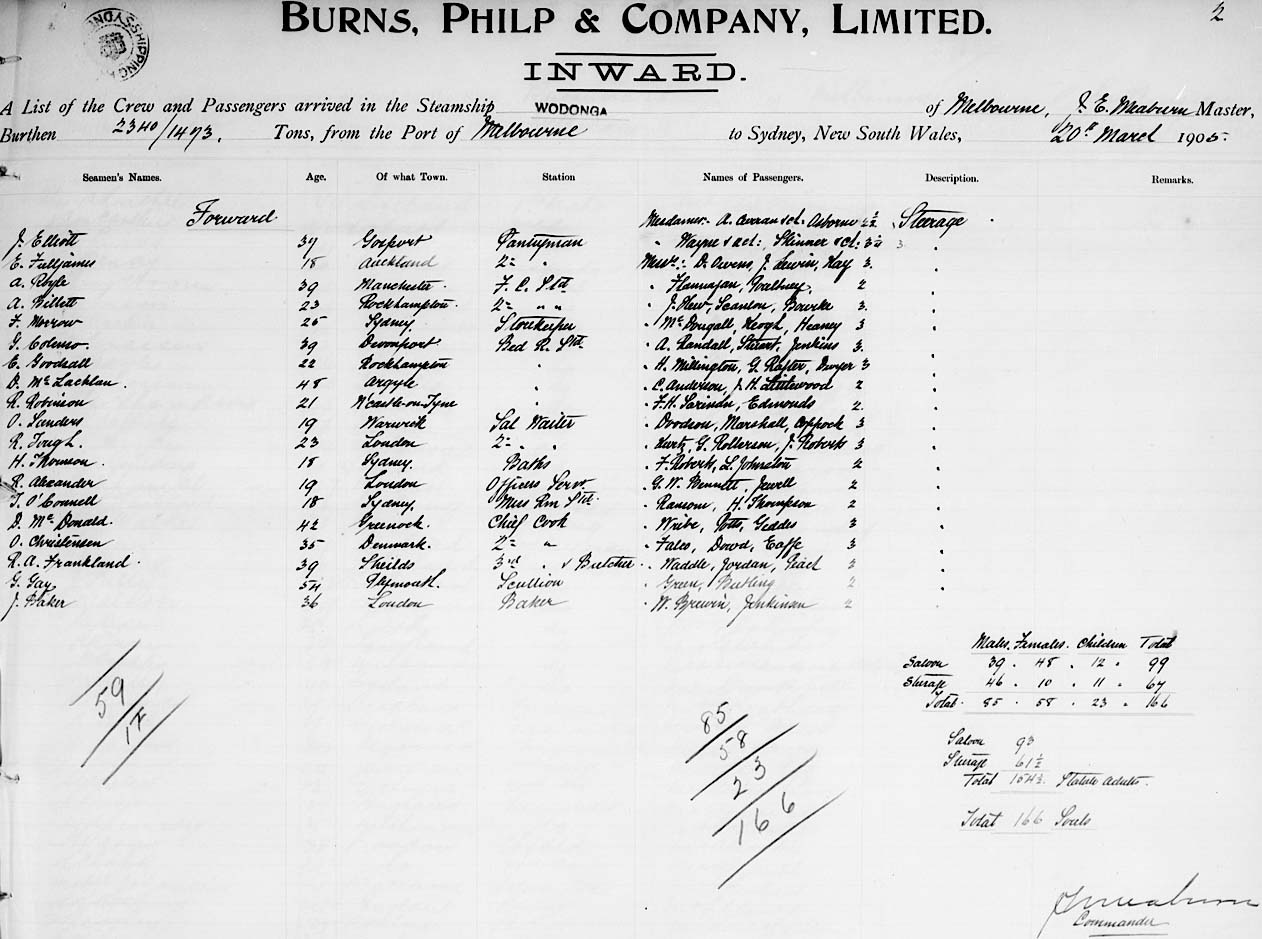 2
BURNS, PHILP & COMPANY, LIMITED.
INWARD.
A List of the Crew and Passengers arrived in the Steamship WODONGA of Melbourne, J. E. Meaburn Master,
Burthen 2340/1473, Tons, from the Port of Melbourne to Sydney, New South Wales, 20th March 1905.
Seamen's Names. Age. Of what Town. Station Names of Passengers. Description. Remarks.
Forward Mesdames:- A. Curran & ch: Osborne 2½ Steerage
J. Elliott 37 Gosport Pantryman " Wayne & 2ch:, Skinner & ch: 3
E. Fulljames 18 Auckland 2nd " Messrs: D. Owens, J. Lewin, Kay 3.
A. Royle 39 Manchester F. C. Std " Flannagan, 2
A. Billett 23 Rockhampton 2nd " " " J. Hew, Scanlon, Bourke 3.
F. Morrow 25 Sydney. Storekeeper " McDougall, Keogh, Heaney 3
G. 39 Devonport Bed R. Std. " A. Randall, Stuart, Jenkins 3.
E. Goodsall 22 Rockhampton " " H. Millington, G. Rafter, Dwyer 3
D. McLachlan. 48 Argyle " " C. Anderson, J. H. Littlewood 2
R. Robinson 21 N'castle-on-Tyne " " F. H. Edmonds 2.
O. Sanders 19 Warwick Sal Waiter " Dodson, Marshall, Coppock 3
R. Tough. 23 London 2nd " " " Kurtz, G. Rollerson, J. Roberts 3
H. Thomson. 18 Sydney. Baths " F. Roberts, L. Johnston 2
R. Alexander 19 London Officers Serv. " G. W. Bennett, Jewell 2
T. O'Connell 18 Sydney. Mess Rm Std. " Ransom, H. Thompson 2
D. McDonald. 42 Greenock. Chief Cook " Potts, Geddes 3
O. Christensen 35 Denmark. 2nd " " Fales, Dowd, 3
R. A. Frankland 39 Sheilds 3rd " & Butcher " Waddle, Jordan, 3
G. Gay 54 Plymouth. Scullion " Green, 2
J. Baker 36 London Baker " W. Brewin, Jenkinson 2
Males. Females. Children Total
Saloon 39 . 48 . 12 " 99
Steerage 46 . 10 . 11 " 67
Total 85 . 58 . 23 " 166
59
17
85
58
23
166
Saloon 93
Steerage 61½
Total 154½ Statute Adults.
Total 166 Souls
J E Meaburn
Commander